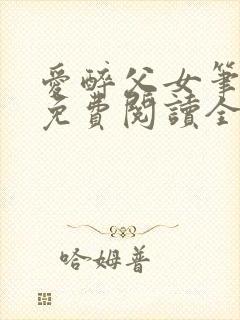 愛醉父女筆
免費閱讀全
哈姆普